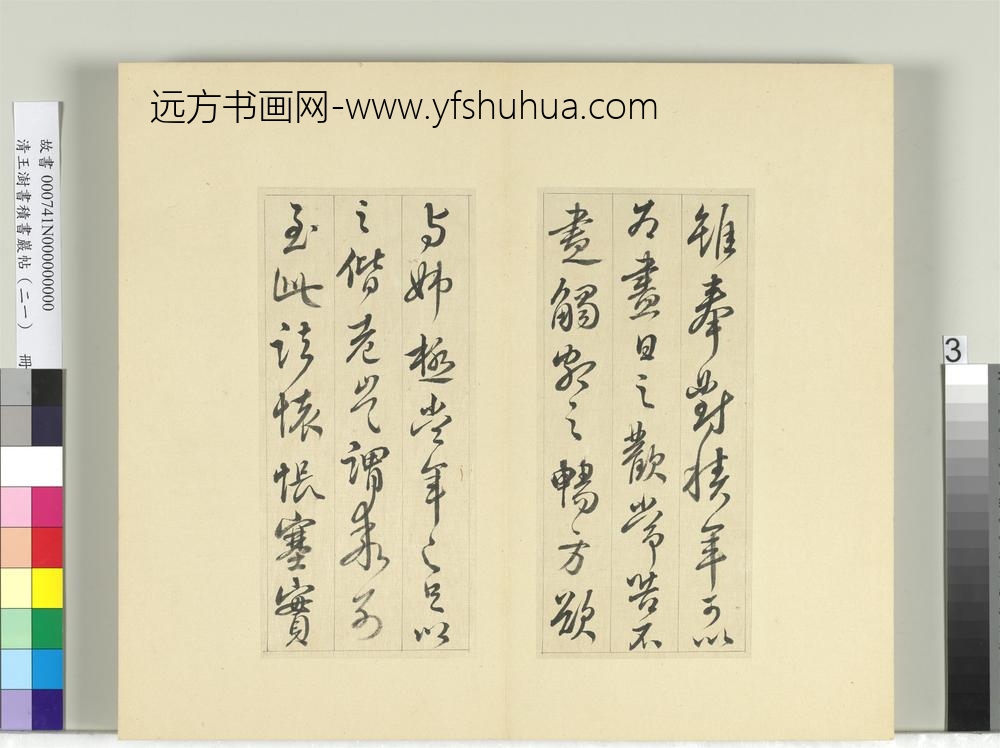 远方书画网-www.yfshuhua.com
雖奉對積年可以
為盡日之歡常苦不
盡觸額之暢方欲
與姊極當年之足以
之偕老豈謂乖別
至此諸懷悵塞實
故書 000741N000000000
清王澍書積書巖帖(二一) 冊
3